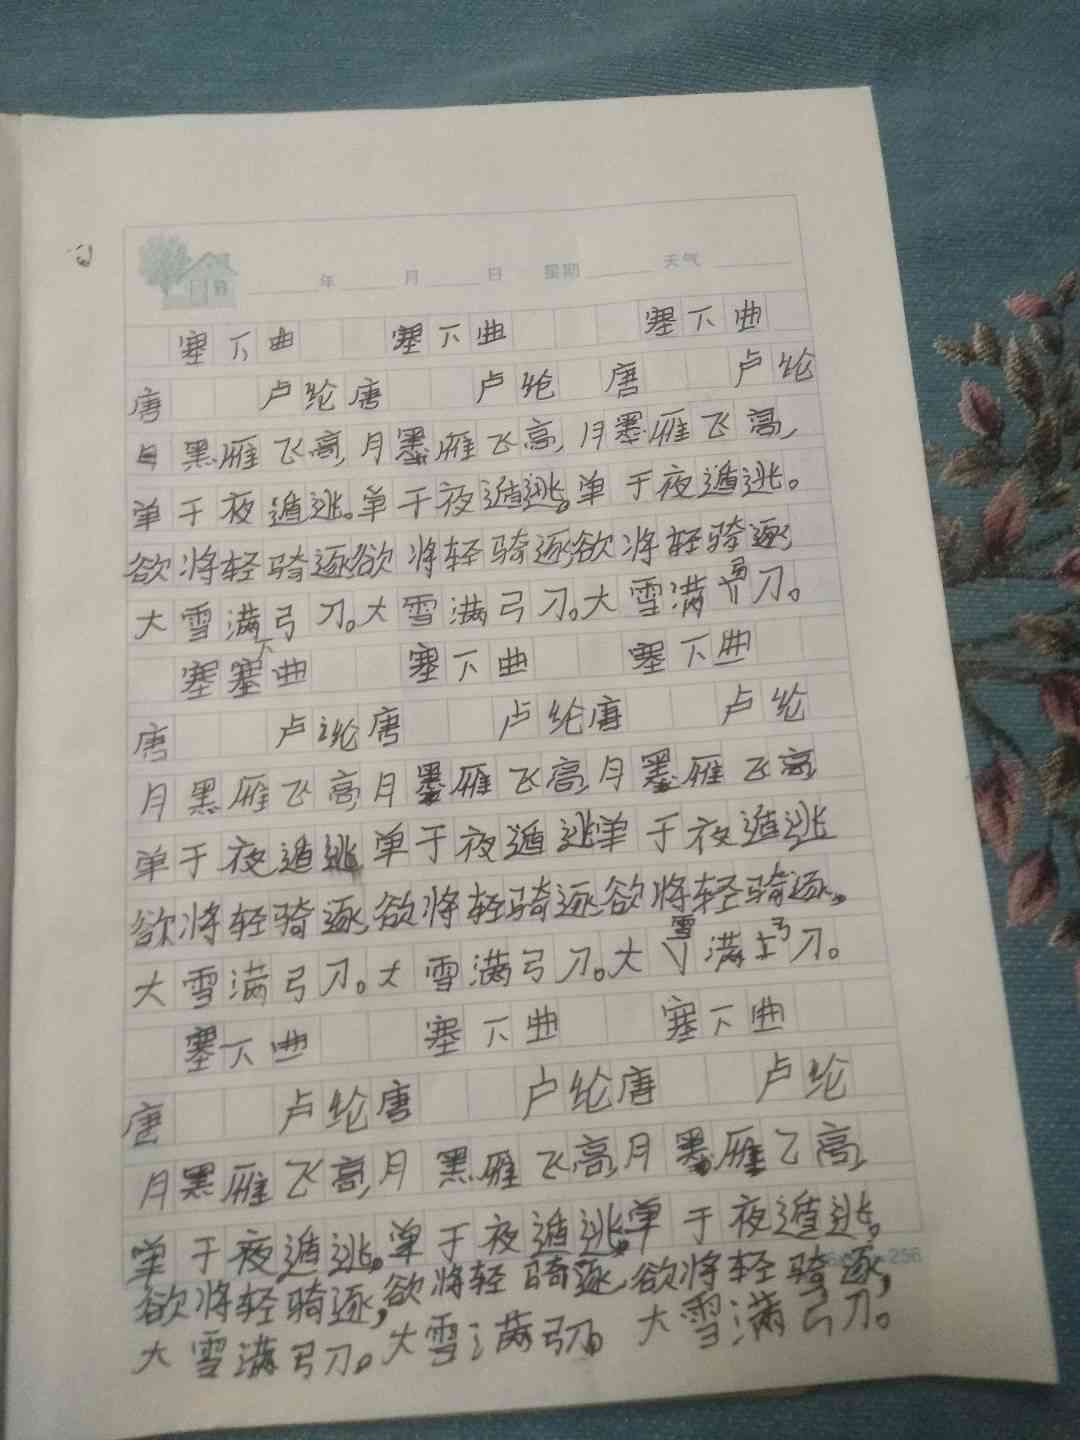 年 月 日 星期 天气
塞下曲 塞下曲 塞下曲
唐 卢纶唐 卢纶 唐 卢纶
月黑雁飞高,月墨雁飞高,月墨雁飞高,
单于夜遁逃。单于夜遁逃。单于夜遁逃。
欲将轻骑逐,欲将轻骑逐,欲将轻骑逐,
大雪满弓刀。大雪满弓刀。大雪满弓刀。
塞塞下曲 塞下曲 塞下曲
唐 卢纶唐 卢纶唐 卢纶
月黑雁飞高,月墨雁飞高,月墨雁飞高
单于夜遁逃 单于夜遁逃单于夜遁逃
欲将轻骑逐,欲将轻骑逐,欲将轻骑逐,
大雪满弓刀。大雪满弓刀。大雪满弓刀。
塞下曲 塞下曲 塞下曲
唐 卢纶唐 卢纶唐 卢纶
月黑雁飞高,月黑雁飞高,月墨雁飞高,
单于夜遁逃。单于夜遁逃。单于夜遁逃。
欲将轻骑逐,欲将轻骑逐,欲将轻骑逐,
大雪满弓刀。大雪满弓刀。大雪满弓刀。